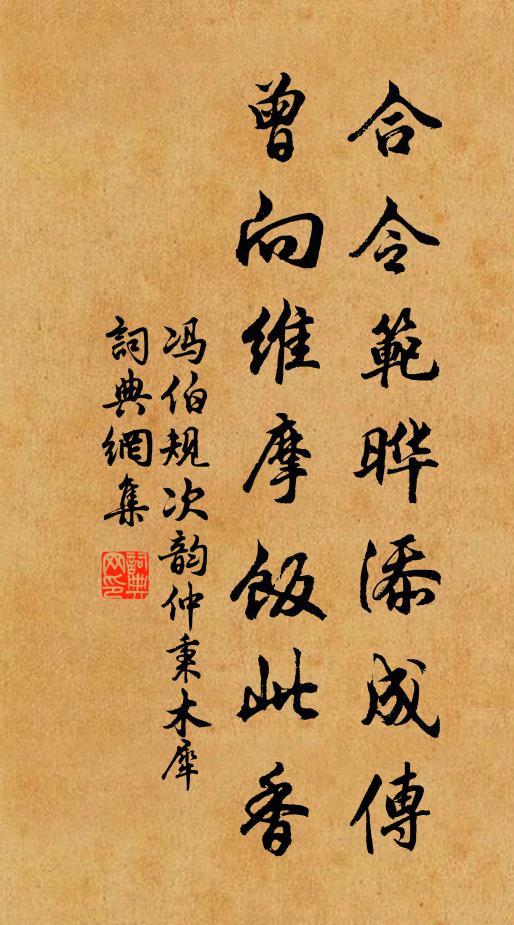 合令範晔添成傳
曾向维摩飯此香
冯伯规次韵仲秉木犀
詞典網集
詞典網印